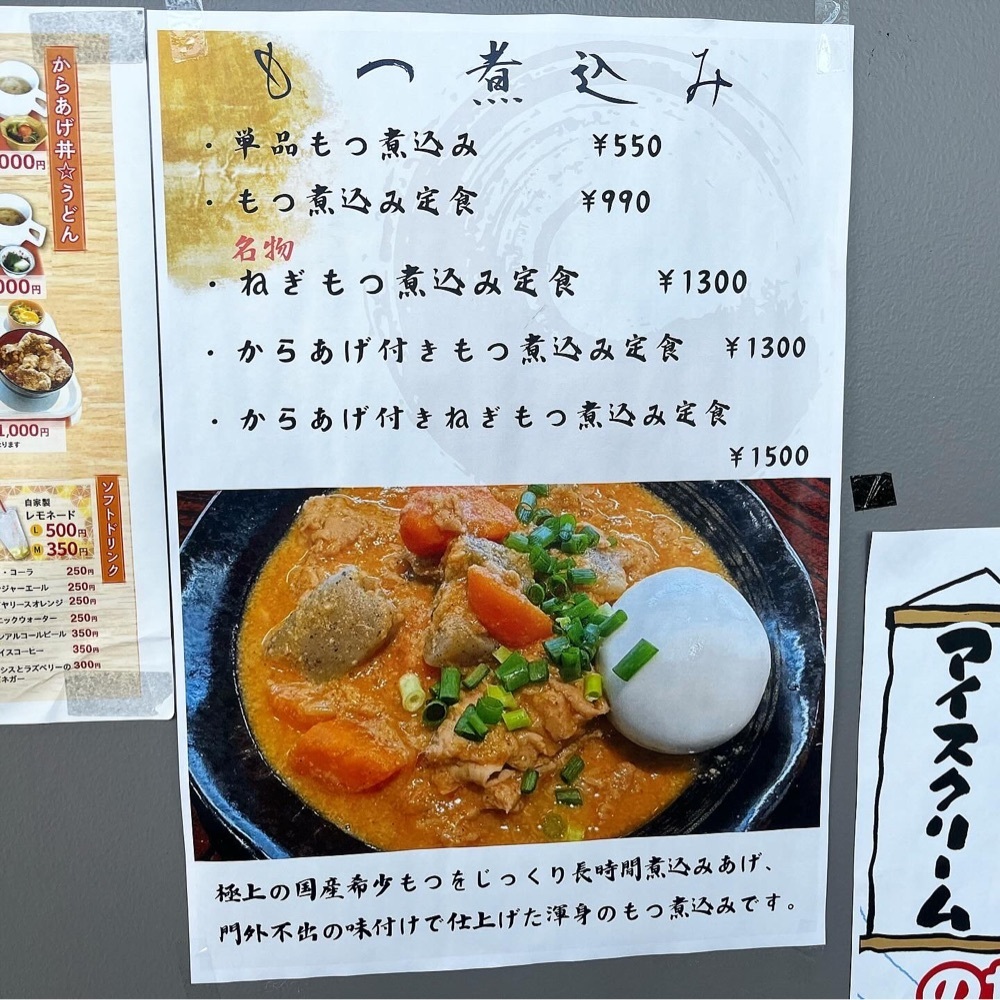 からあげ丼☆うどん
000円
000円
1,000円
自家製
レモネード
L 500円
M 350円
ソフトドリンク
・コーラ 250円
ジャーエール 250円
ヤリースオレンジ 250円
ニックウォーター 250円
ンアルコールビール 350円
イスコーヒー 350円
シスとラズベリーの 300円
ネガー
もつ煮込み
・単品もつ煮込み ¥550
・もつ煮込み定食 ¥990
名物
・ねぎもつ煮込み定食 ¥1300
・からあげ付きもつ煮込み定食 ¥1300
・からあげ付きねぎもつ煮込み定食
¥1500
極上の国産希少もつをじっくり長時間煮込みあげ、
門外不出の味付けで仕上げた渾身のもつ煮込みです。
アイスクリーム
の